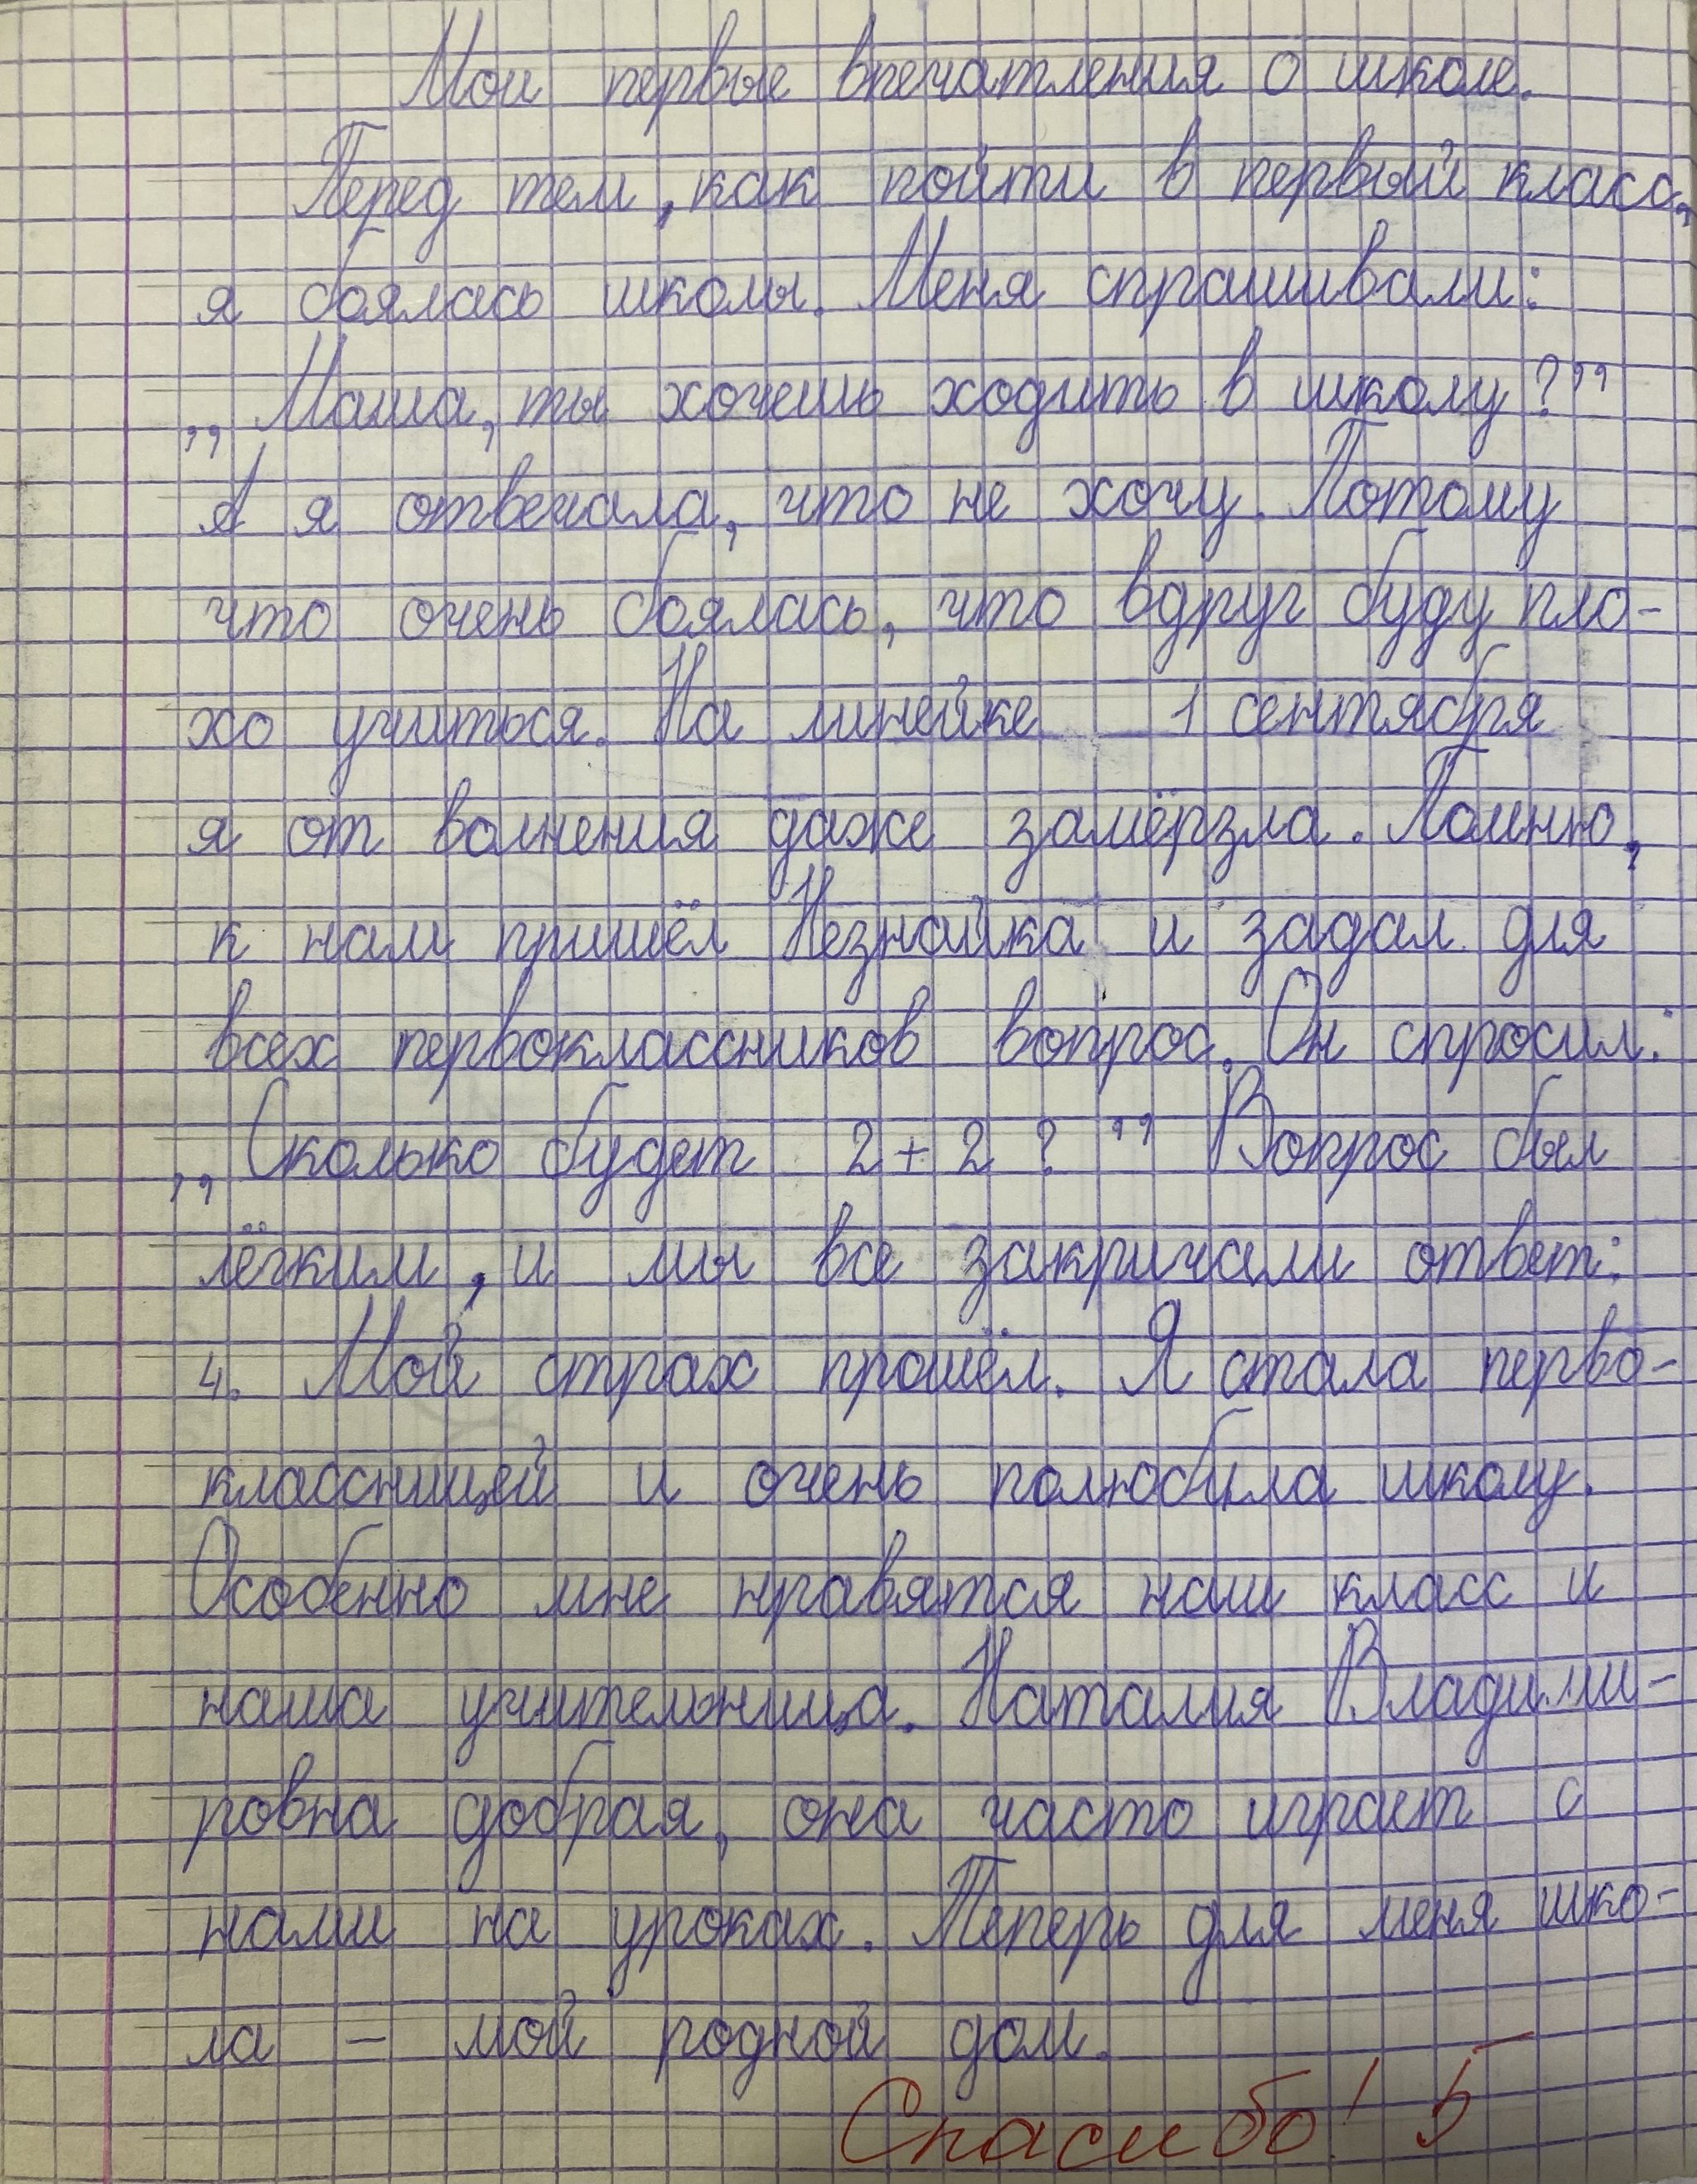 Мои первые впечатления о школе.
Перед тем, как пойти в первый класс,
я боялась школы. Меня спрашивали:
„Маша, ты хочешь ходить в школу?”
А я отвечала, что не хочу. Потому
что очень боялась, что вдруг буду пло-
хо учиться. На линейке 1 сентября
я от волнения даже замёрзла. Помню,
к нам пришёл Незнайка и задал для
всех первоклассников вопрос. Он спросил:
„Сколько будет 2+2?” Вопрос был
лёгким, и мы все закричали ответ:
4. Мой страх прошёл. Я стала перво-
классницей и очень полюбила школу.
Особенно мне нравятся наш класс и
наша учительница. Наталия Владими-
ровна добрая, она часто играет с
нами на уроках. Теперь для меня шко-
ла – мой родной дом.
Спасибо! 5